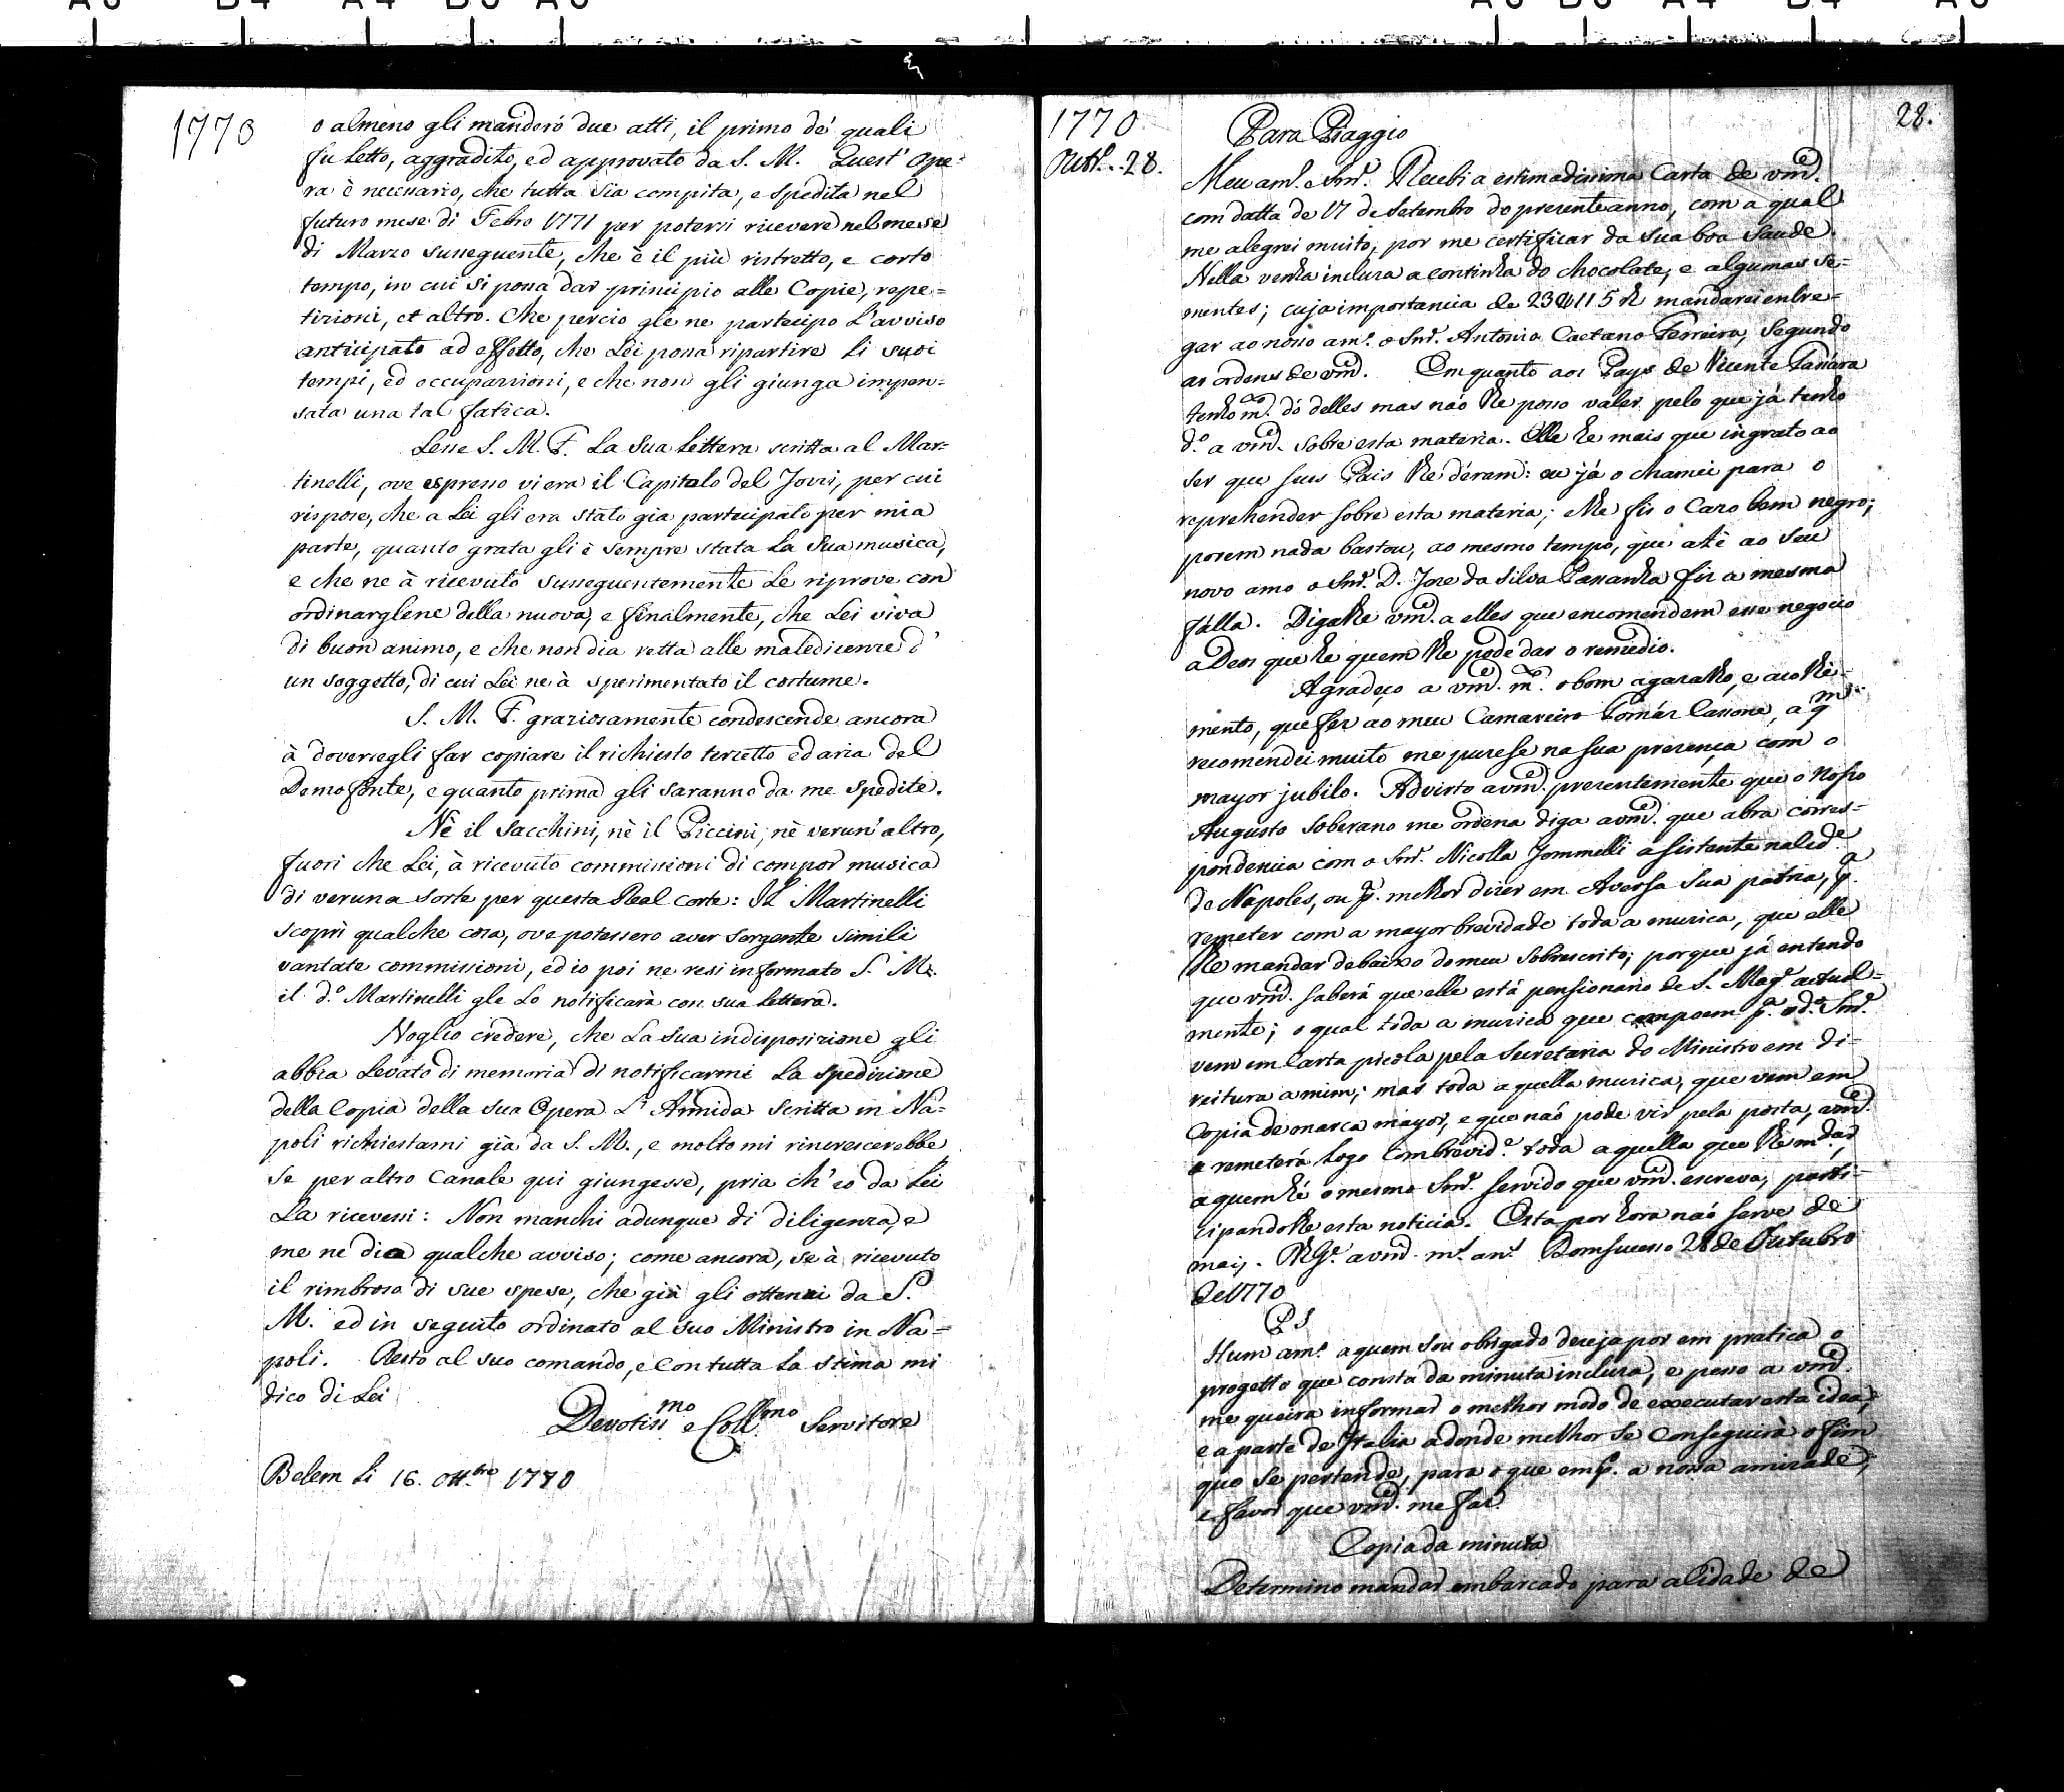 1770
o almeno gli manderó due atti, il primo de' quali
fu letto, aggradito, ed approvato da S. M. Quest' Ope-
ra è necessario, che tutta sia compita, e spedita nel
futuro mese di Febro 1771 per potersi ricevere nel mese
di Marzo susseguente, che è il più ristretto, e corto
tempo, in cui si possa dar principio alle Copie, repe-
tizioni, et altro. Che percio gle ne partecipo l'avviso
anticipato ad effetto, che Lei possa ripartire li suoi
tempi, ed occupazioni, e che non gli giunga impen-
sata una tal fatica.
Lesse S. M. F. La sua lettera scritta al Mar-
tinelli, ove espresso viera il Capitolo del Jovis, per cui
rispose, che a Lei gli era stato gia participato per mia
parte, quanto grata gli è sempre stata la sua musica,
e che ne à ricevuto susseguentemente le riprove con
ordinarglene della nuova, e finalmente, che Lei viva
di buon animo, e che non dia retta alle maledicenze d'
un soggetto, di cui Lei ne à sperimentato il costume.
S. M. F. graziosamente condescende ancora
à doversegli far copiare il richiesto terzetto ed aria del
Demofonte, e quanto prima gli saranno da me spedite.
Nè il Sacchini, nè il Piccini, nè verun' altro,
fuori che Lei, à ricevuto commissioni di compor musica
di veruna sorte per questa Real Corte: Il Martinelli
scoprì qualche cosa, ove potessero aver sorgente simili
vantate commissioni, ed io poi ne resi informato S. M.
il d.º Martinelli gle lo notificarà con sua lettera.
Voglio credere, che la sua indisposizione gli
abbia levato di memoria di notificarmi la spedizione
della Copia della sua Opera L' Armida scritta in Na-
poli richiestami già da S. M., e molto mi rincrescerebbe
se per altro Canale qui giungesse, pria ch' io da Lei
La ricevessi: Non manchi adunque di diligenza, e
me ne dica qualche avviso; come ancora, se à ricevuto
il rimborso di sue spese, che già gli ottenni da S.
M. ed in seguito ordinato al suo Ministro in Na-
poli. Resto al suo comando, e con tutta la stima mi
dico di Lei
Devotiss.mo e Coll.mo Servitore
Belem li 16. Ott.bre 1770
28.
1770
Outr.º 28.
Para Piaggio
Meu am.º e Snr.' Recebi a estimadissima Carta de vm.ce
com datta de 17 de Setembro do presente anno, com a qual
me alegrei muito, por me certificar da sua boa saude.
Nella venha inclusa a continha do chocolate, e algumas se-
mentes; cuja importancia de 23$115 r.s mandarei entre-
gar ao nosso am.º o Snr.' Antonio Caetano Ferreira, segundo
as ordens de vm.ce Em quanto aos Pays de Vicente
tenho m.to dó delles mas náo lhe posso valer pelo que já tenho
d.º a vm.ce sobre esta materia. Elle he mais que ingrato ao
ser que seus Pais lhe déram: eu já o chamei para o
reprehender sobre esta materia; e lhe fis o Cazo bem negro;
porem nada bastou, ao mesmo tempo, que até ao seu
novo amo o Snr.' D. Joze da Silva Passanha fis a mesma
falla. Digalhe vm.ce a elles que encomendem esse negocio
a Deos que he quem lhe póde dar o remedio.
Agradeço a vm.ce m.to o bom agazalho, e acolhi-
mento, que fez ao meu Camareiro Tomás Cassone, a q.m
recomendei muito me puzese na sua prezença com o
mayor jubilo. Advirto a vm.ce prezentemente que o Nosso
Augusto Soberano me ordena diga a vm.ce que abra corres-
pondencia com o Snr.' Nicolla Jommelli assistente na Cid.e
de Napoles, ou p.a melhor dizer em Aversa sua patria, p.a
remeter com a mayor brevidade toda a muzica, que elle
lhe mandar debaixo do meu sobrescrito; porque já entendo
que vm.ce saberá que elle está pensionario de S. Mag.e actual-
mente; o qual toda a muzica que compoem p.a o d.º Snr.'
vem em Carta picola pela Secretaria do Ministro em di-
reitura a mim; mas toda aquella muzica, que vem em
Copia de marca mayor, e que naó pode vir pela posta, a vm.ce
a remeterá logo com brevid.e toda aquella que lhe mdar,
aquem hé o mesmo Snr.' servido que vm.ce escreva, parti-
cipandolhe esta noticia. Esta por hora náo serve de
mais. D.s G.e a vm.ce m.s an.s Bomsucesso 28 de Outubro
de 1770
P S
Hum am.º a quem sou obrigado dezeja por em pratica o
progetto que consta da minuta inclusa, e pesso a vm.ce
me queira informar o melhor modo de executar esta idea,
e a parte de Italia adonde melhor se conseguirà o fim
que se pertende, para o que emp.º a nossa amizade,
e favor que vm.ce me faz.
Copia da minuta
Determino mandar embarcado para a Cidade de